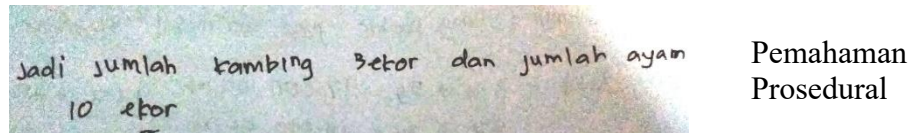 Jadi jumlah kambing 3ekor dan jumlah ayam
10 ekor
Pemahaman
Prosedural